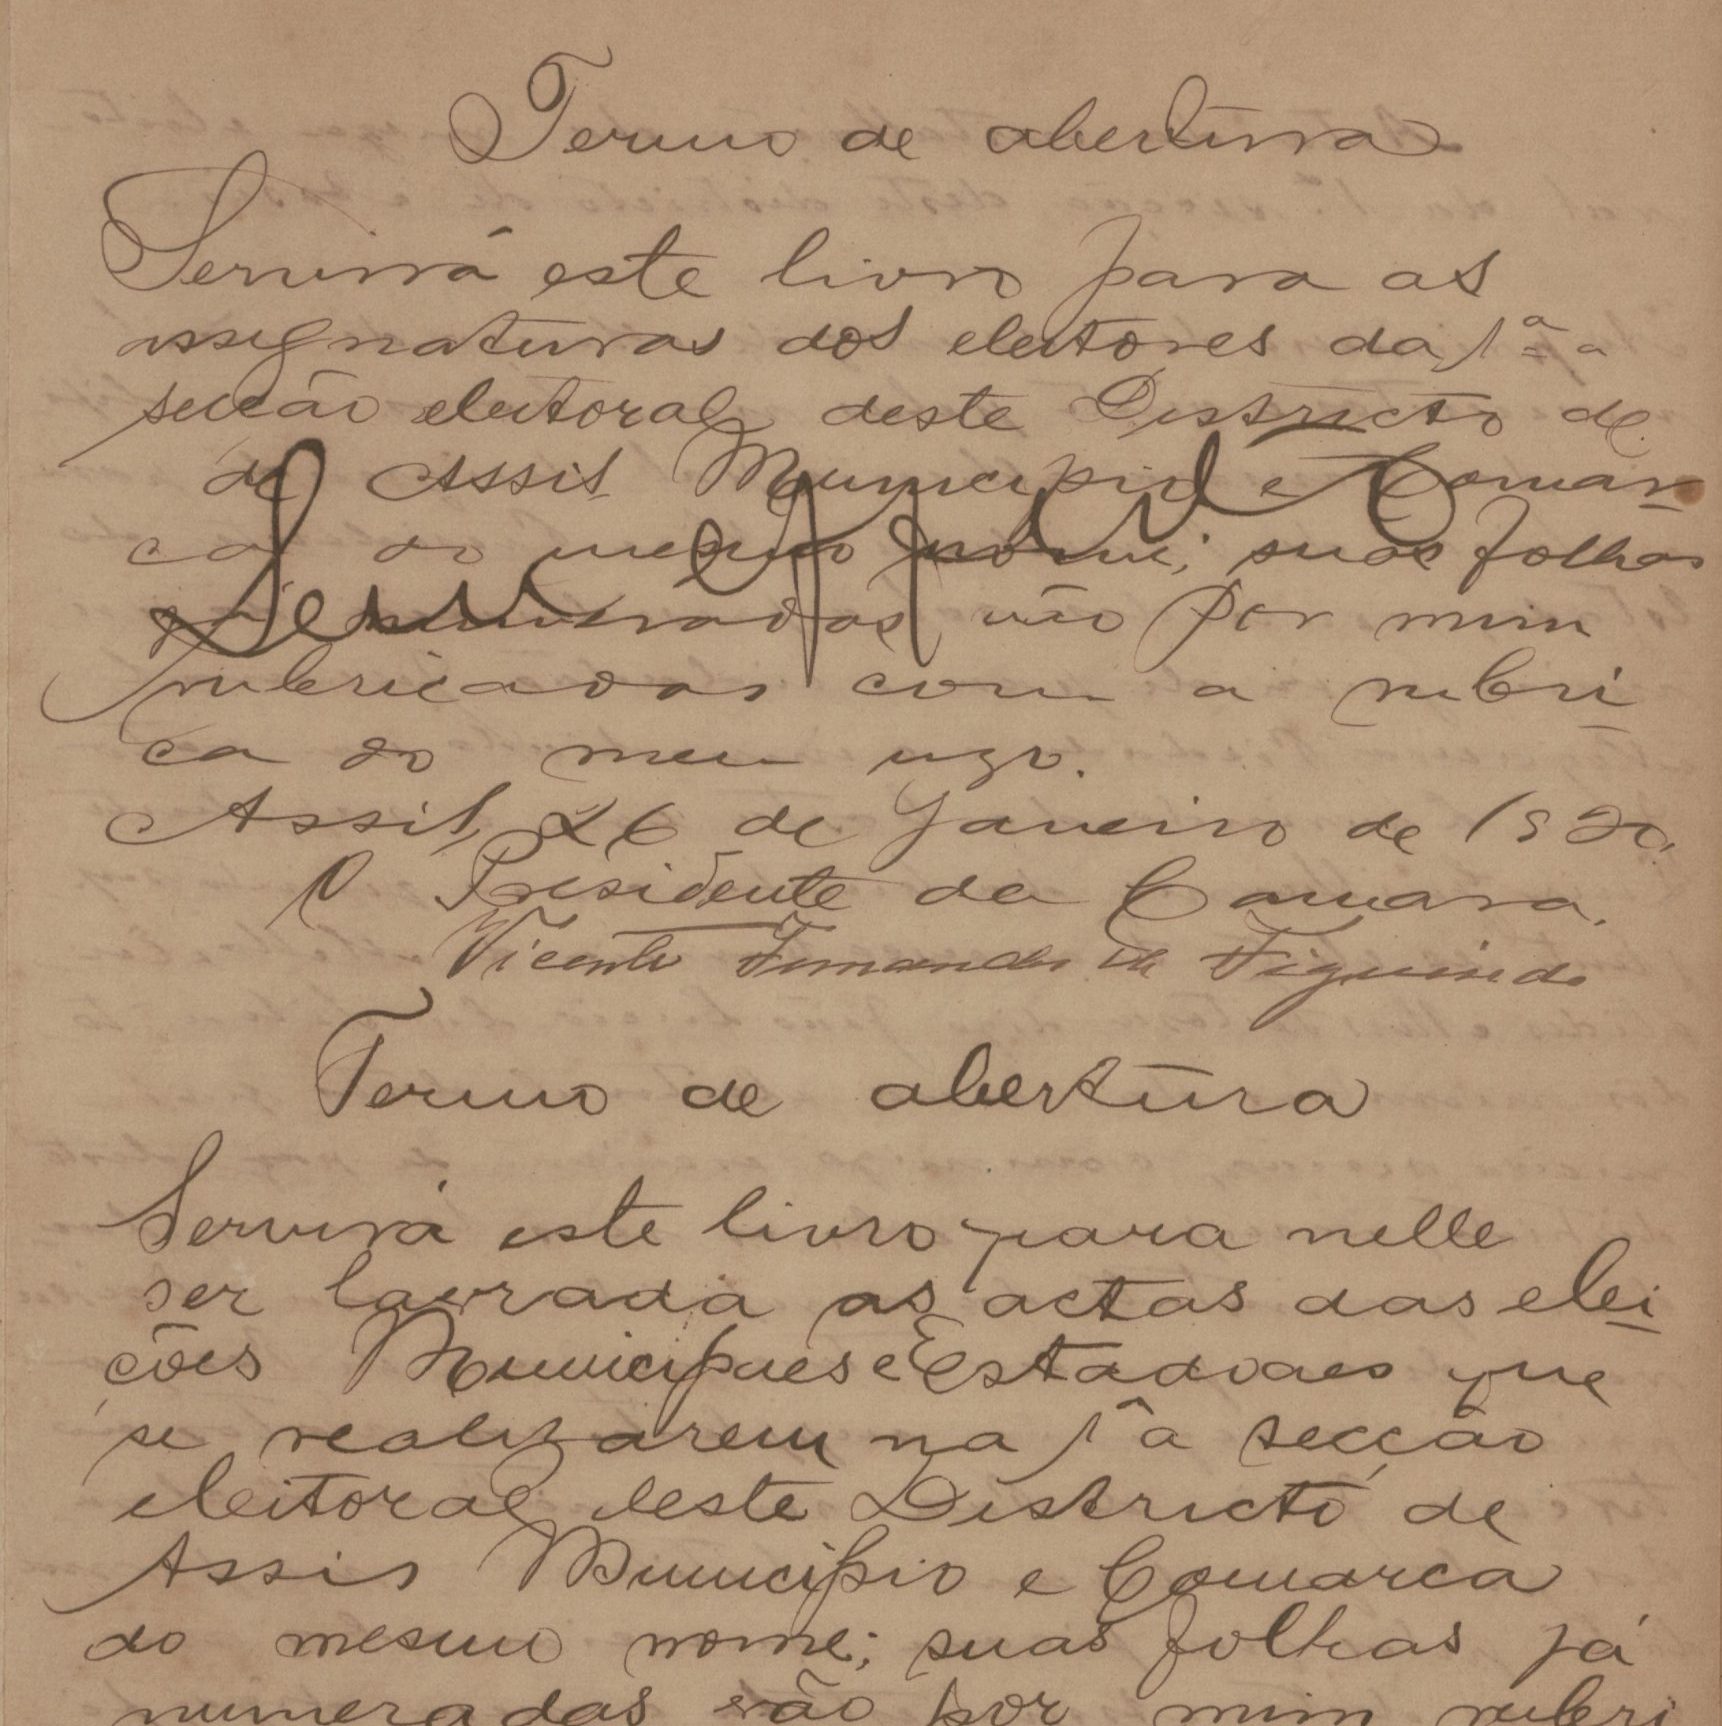 Termo de abertura
Servirá este livro para as
assignaturas dos eleitores da 1ª
secção eleitoral deste Districto de
de Assis Municipio e Comar
ca do mesmo nome; suas folhas
já numeradas vão por mim
rubricadas com a rubri
ca do meu uzo.
Assis, 26 de Janeiro de 1920.
O Presidente da Camara.
Vicente Fernandes de Figueiredo
Sem effeito
Termo de abertura
Servirá este livro para nelle
ser lavrada as actas das elei
ções Municipaes e Estadoaes que
se realizarem na 1ª secção
eleitoral deste Districto de
Assis Municipio e Comarca
do mesmo nome; suas folhas já
numeradas vão por mim rubri